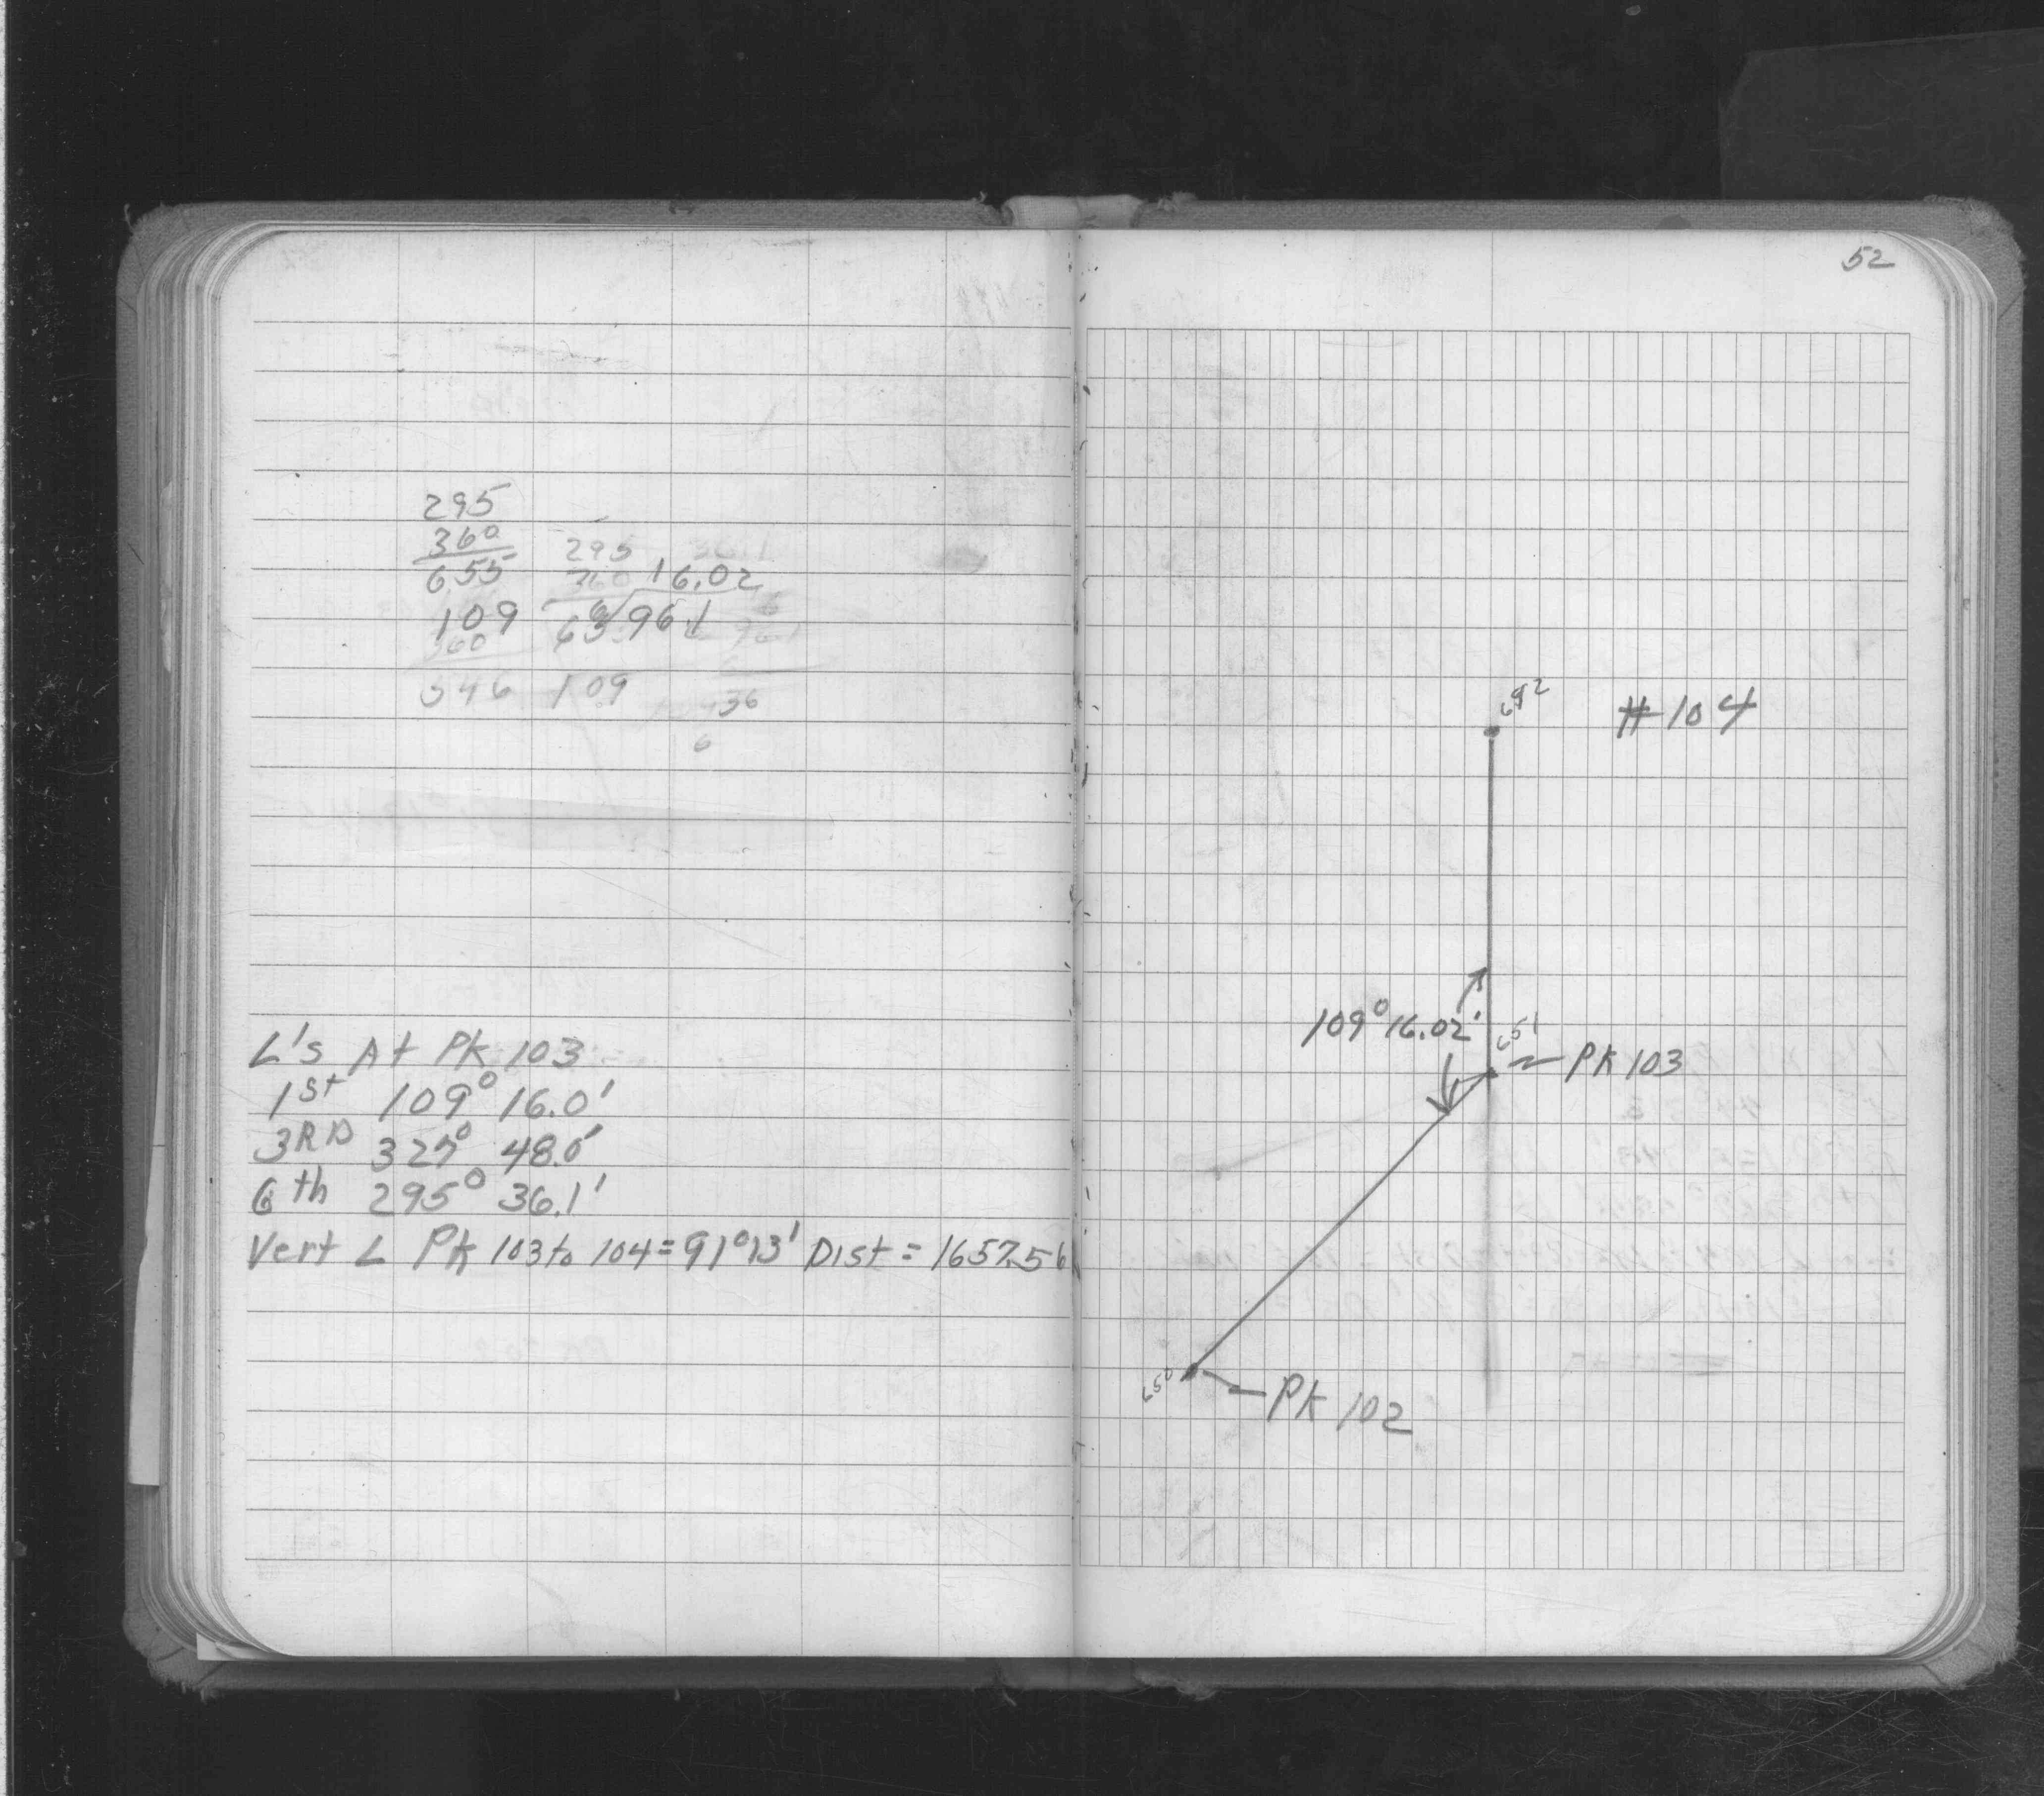 52
295
360
655
109
360
546
295 36.1
360 16.02
6 96.1
109
36
6
L's At Pk 103
1st 109° 16.0'
3RD 327° 48.0'
6th 295° 36.1'
Vert L Pk 103 to 104 = 91°13' Dist = 1657.56
652 #104
109° 16.02'
651
PK 103
650
PK 102